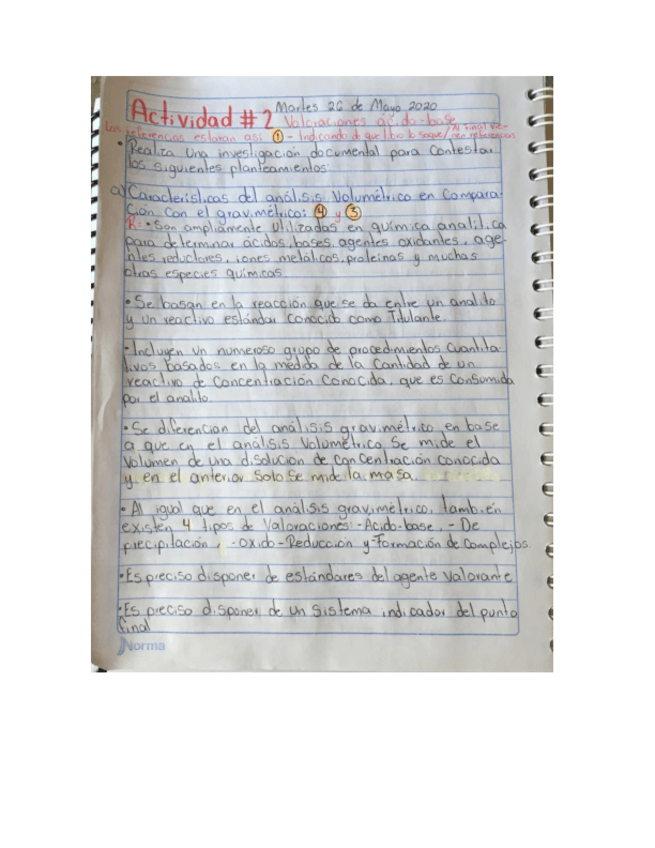 Martes 26 de Mayo 2020
Actividad #2 Valoraciones ácido-base
Las referencias estaran asi ① - Indicando de que libro lo saque/Al final vie-
nen referencias
• Realiza una investigación documental para contestar
los siguientes planteamientos:
a) Características del análisis Volumétrico en Compara-
ción con el gravimétrico: ④ y ③
R: • Son ampliamente utilizadas en química analítica
para determinar ácidos, bases, agentes oxidantes, age-
ntes reductores, iones metálicos, proteínas y muchas
otras especies químicas
• Se basan en la reacción que se da entre un analito
y un reactivo estándar Conocido como Titulante.
• Incluyen un numeroso grupo de procedimientos Cuantita-
tivos basados en la medida de la Cantidad de un
reactivo de Concentración Conocida, que es Consumida
por el analito.
• Se diferencian del análisis gravimétrico en base
a que en el análisis Volumétrico Se mide el
Volumen de una disolución de concentración conocida
y en el anterior Solo Se mide la masa.
• Al igual que en el análisis gravimétrico, también
existen 4 tipos de Valoraciones: -Ácido-base, - De
precipitación, -oxido-Reducción y-Formación de Complejos.
• Es preciso disponer de estándares del agente Valorante
• Es preciso disponer de un Sistema indicador del punto
final
Norma